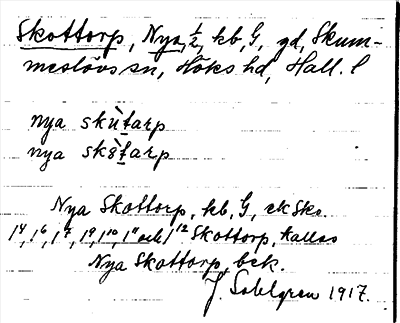 Skottorp, Nya, ½, kb, G, gd, Skum-
meslövs sn, Höks hd, Hall. l
nya skùtarp
nya skòtarp
Nya Skottorp, kb, G, ek Sko.
1⁴, 1⁶, 1⁷, 1⁹, 1¹⁰, 1¹¹ och 1¹² Skottorp, kallas
Nya Skottorp, bck.
J. Sahlgren 1917.